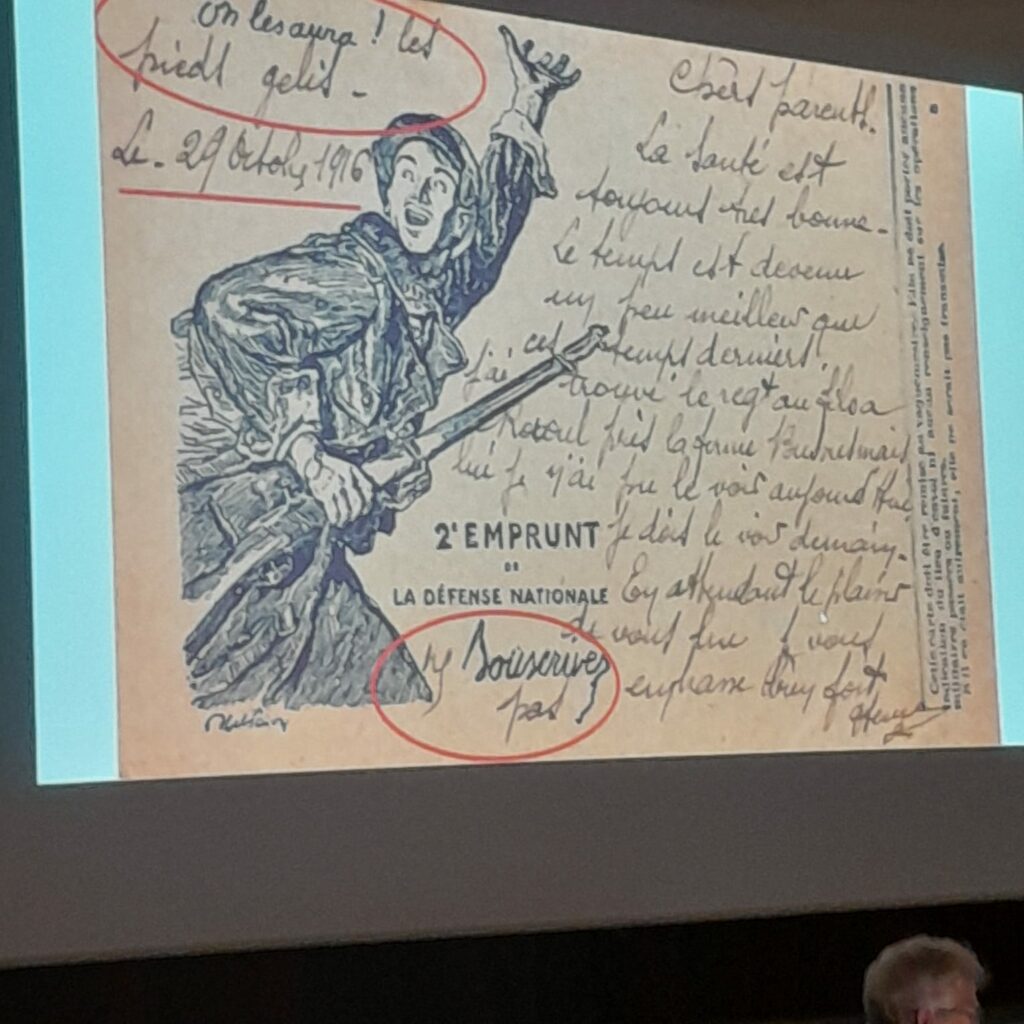 on les aura ! les
pieds gelés -
Le - 29 Octobre 1916
Chers parents.
La Santé est
toujours très bonne -
Le temps est devenu
un peu meilleur que
ces temps derniers.
j'ai trouvé le regt au
près la ferme mais
je n'ai pu le voir aujourd'hui
je dois le voir demain.
En attendant le plaisir
de vous lire je vous
embrasse bien fort
2e EMPRUNT
DE
LA DÉFENSE NATIONALE
ne Souscrivez
pas
Cette carte doit être remise au vaguemestre. Elle ne doit porter aucune
indication du lieu d'envoi ni aucun renseignement sur les opérations
militaires passées ou futures.
S'il en était autrement, elle ne serait pas transmise.